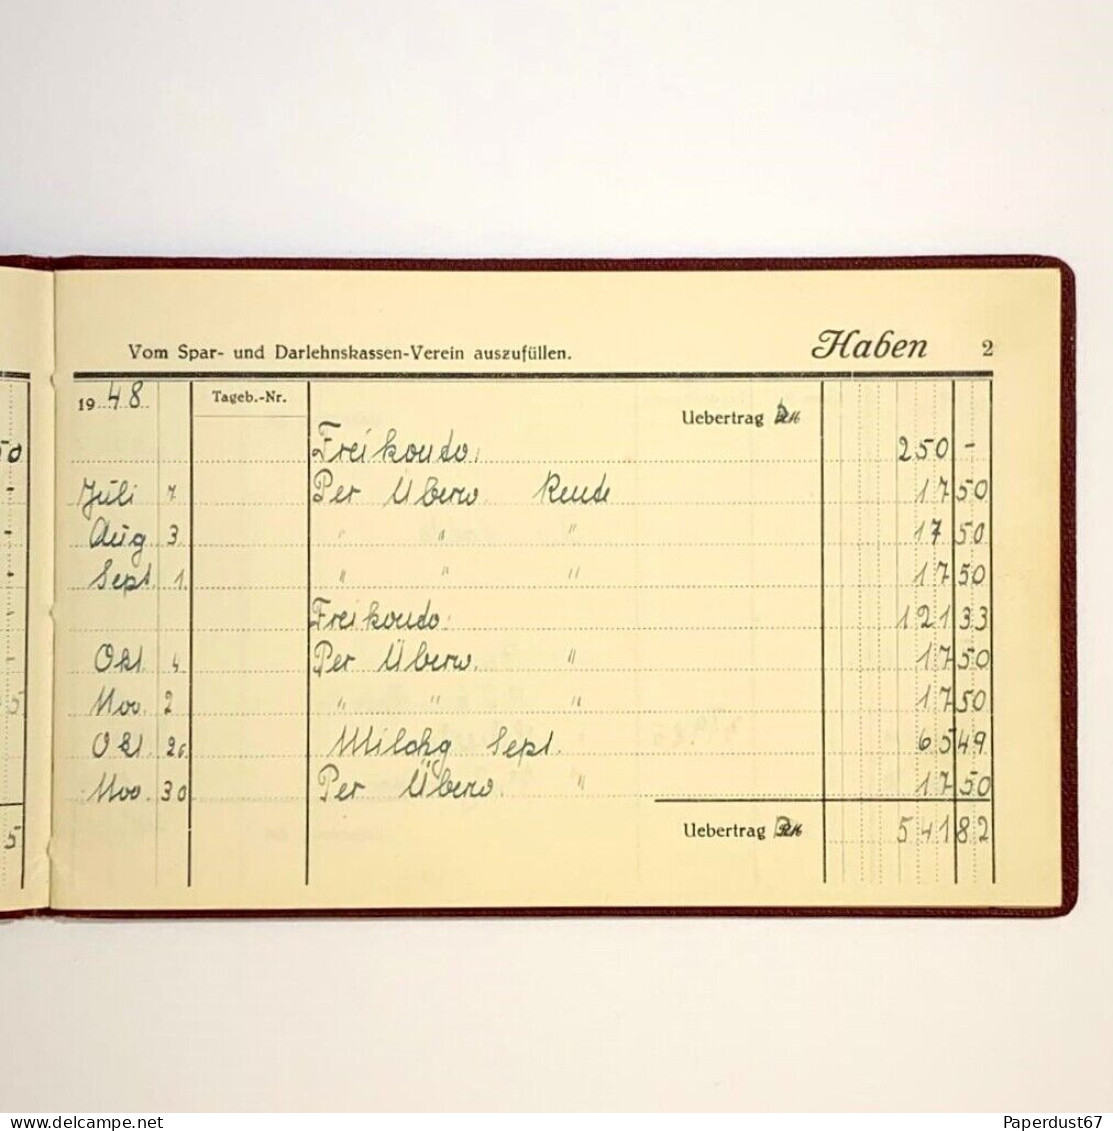 Vom Spar- und Darlehnskassen-Verein auszufüllen. Haben 2
1948 Tageb.-Nr. Uebertrag
Freikonto. 250 -
50
Juli 7 Per Überw Rente 17 50
Aug 3 " " " 17 50
Sept. 1. " " " 17 50
Freikonto. 121 33
Okt. 4 Per Überw. " 17 50
Nov. 2 " " " 17 50
5
Okt. 26. Milchg Sept. 65 49
Nov. 30 Per Überw. " 17 50
5 Uebertrag 541 82
delcampe.net
Paperdust67